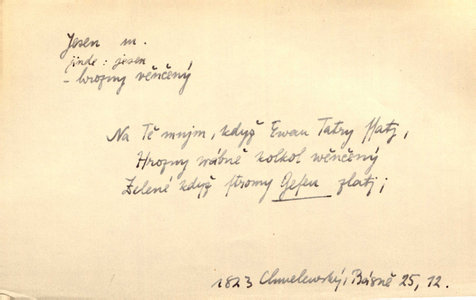 Jesen m.
jinde: jesen
- hrozny věnčený
Na Tě mnjm, když Ewan Tatry zlatj,
Hrozny wábně kolkol wěnčený
Zelené když stromy Gesen zlatj;
1823 Chmelenský, Básně 25, 12.